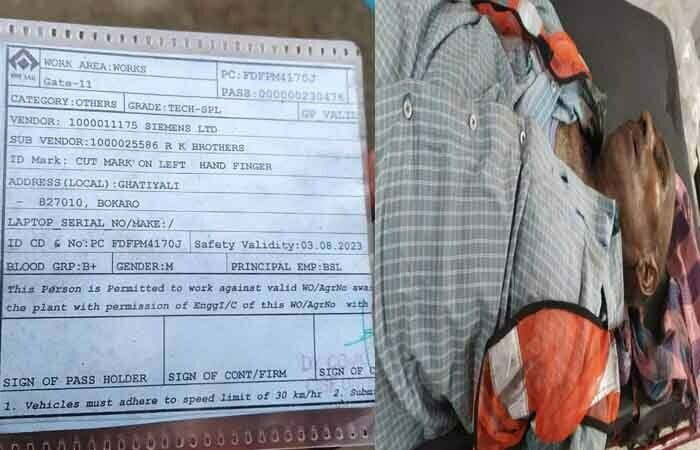 WORK AREA:WORKS
Gate-11
PC:FDFPM4170J
PASS:000000230476
CATEGORY:OTHERS GRADE:TECH-SPL
GP VALID
VENDOR: 1000011175 SIEMENS LTD
SUB VENDOR:1000025586 R K BROTHERS
ID Mark: CUT MARK ON LEFT HAND FINGER
ADDRESS(LOCAL):GHATIYALI
- 827010, BOKARO
LAPTOP SERIAL NO/MAKE:/
ID CD & No:PC FDFPM4170J Safety Validity:03.08.2023
BLOOD GRP:B+ GENDER:M PRINCIPAL EMP:BSL
This Person is Permitted to work against valid WO/AgrNo awa
the plant with permission of EnggI/C of this WO/AgrNo with
SIGN OF PASS HOLDER SIGN OF CONT/FIRM SIGN OF C
1. Vehicles must adhere to speed limit of 30 km/hr 2. Subm